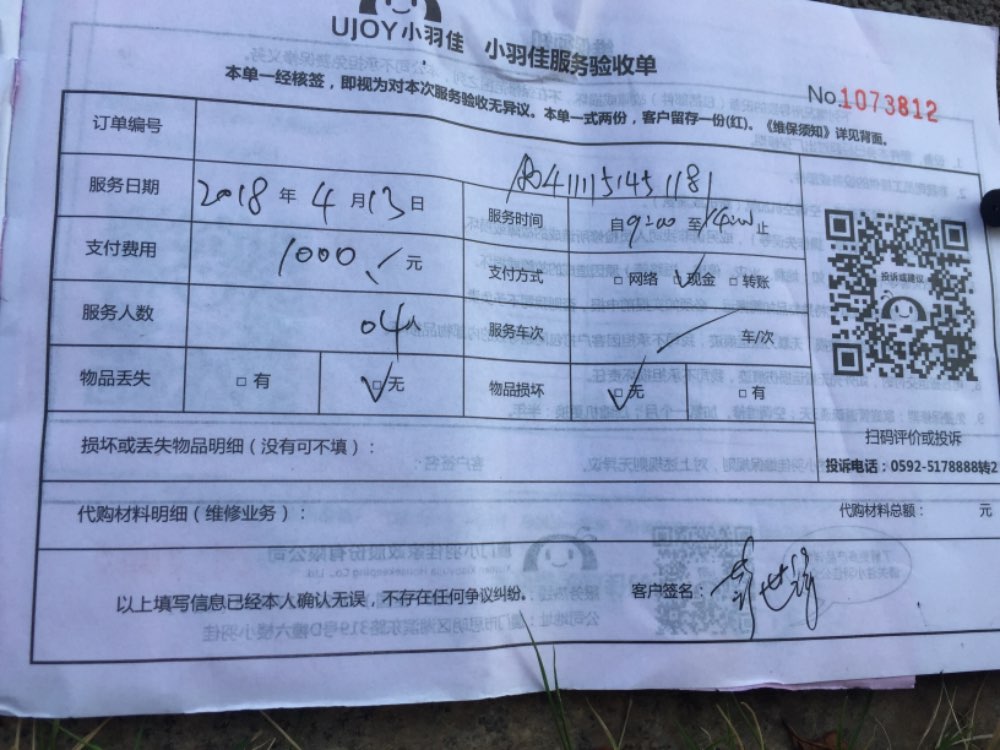 UJOY小羽佳 小羽佳服务验收单
本单一经核签，即视为对本次服务验收无异议。本单一式两份，客户留存一份(红)。《维保须知》详见背面。
No.1073812
订单编号
服务日期 2018 年 4 月 13 日 服务时间 自 9:00 至 14:00 止
支付费用 1000 元 支付方式 □网络 ☑现金 □转账
投诉或建议
服务人数 04人 服务车次 车/次
物品丢失 □有 ☑无 物品损坏 ☑无 □有
扫码评价或投诉
损坏或丢失物品明细（没有可不填）：
投诉电话：0592-5178888转2
代购材料明细（维修业务）： 代购材料总额： 元
以上填写信息已经本人确认无误，不存在任何争议纠纷。 客户签名：